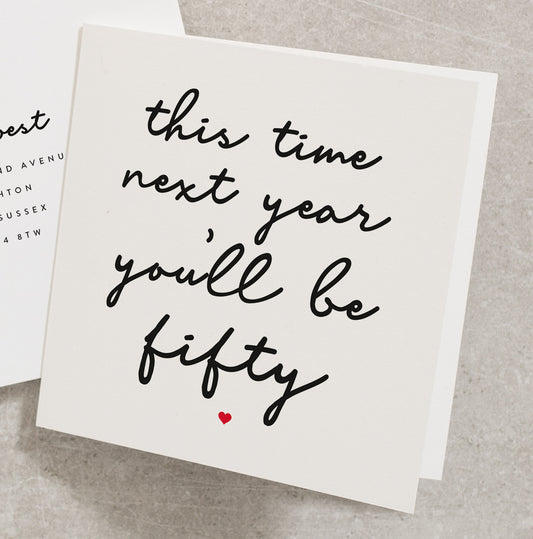 best
ND AVENU
HTON
SUSSEX
4 8TW
this time
next year
you'll be
fifty